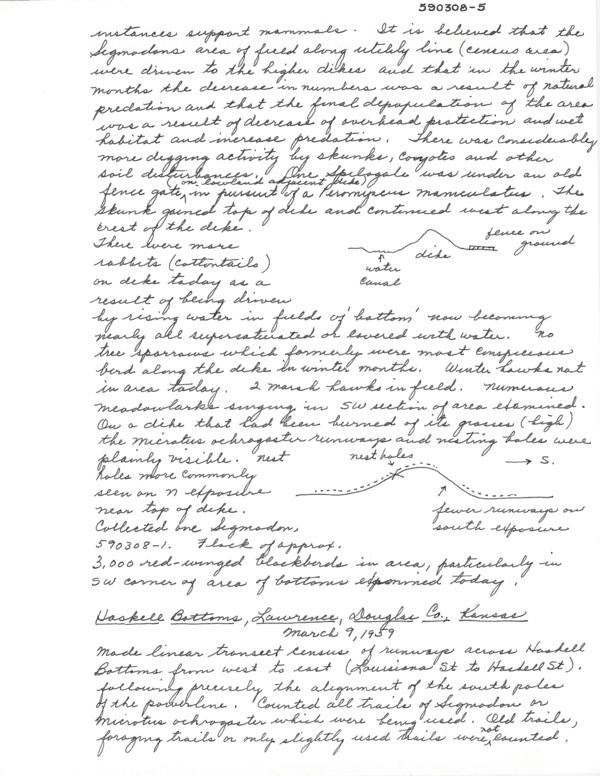 590308-5
instances support mammals. It is believed that the
Sigmodons area of field along utility line (census area)
were driven to the higher dikes and that in the winter
months the decrease in numbers was a result of natural
predation and that the final depopulation of the area
was a result of decrease of overhead protection and wet
habitat and increase predation. There was considerably
more digging activity by skunks, coyotes and other
soil disturbances. One Spilogale was under an old
fence gate, (on lowland adjacent dike) in pursuit of a Peromyscus maniculatus. The
skunk gained top of dike and continued west along the
crest of the dike.
There were more
rabbits (cottontails)
on dike today as a
result of being driven
fence on
ground
dike
water
canal
by rising water in fields of 'bottom' now becoming
nearly all supersaturated or covered with water. No
tree sparrows which formerly were most conspicuous
bird along the dike in winter months. Winter hawks not
in area today. 2 marsh hawks in field. Numerous
meadowlarks singing in SW section of area examined.
On a dike that had been burned of its grasses (high)
the microtus ochrogaster runways and nesting holes were
plainly visible. nest
holes more commonly
seen on N exposure
near top of dike.
Collected one Sigmodon,
590308-1. Flock of approx.
nest holes
→ S.
fewer runways on
south exposure
3,000 red-winged blackbirds in area, particularly in
SW corner of area of bottoms examined today.
Haskell Bottoms, Lawrence, Douglas Co., Kansas
March 9, 1959
Made linear transect census of runways across Haskell
Bottoms from west to east (Louisiana St to Haskell St).
following precisely the alignment of the south poles
of the powerline. Counted all trails of Sigmodon or
Microtus ochrogaster which were being used. Old trails,
foraging trails or only slightly used trails were not counted.